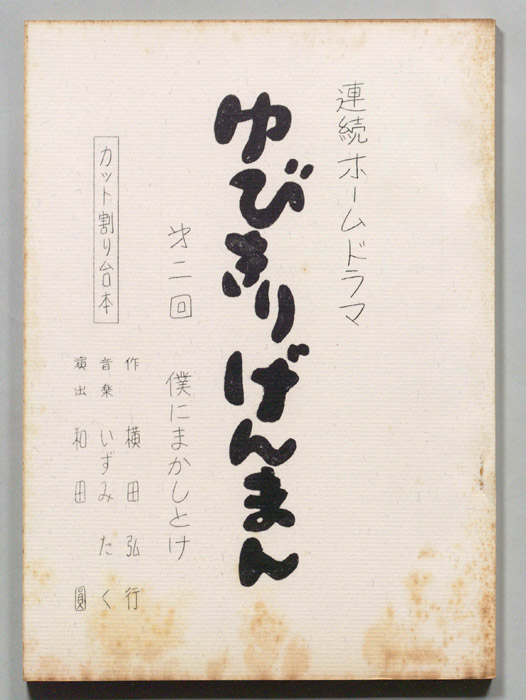 連続ホームドラマ
ゆびきりげんまん
㐧二回 僕にまかしとけ
カット割り台本
作 横田弘行
音楽 いずみたく
演出 和田圓